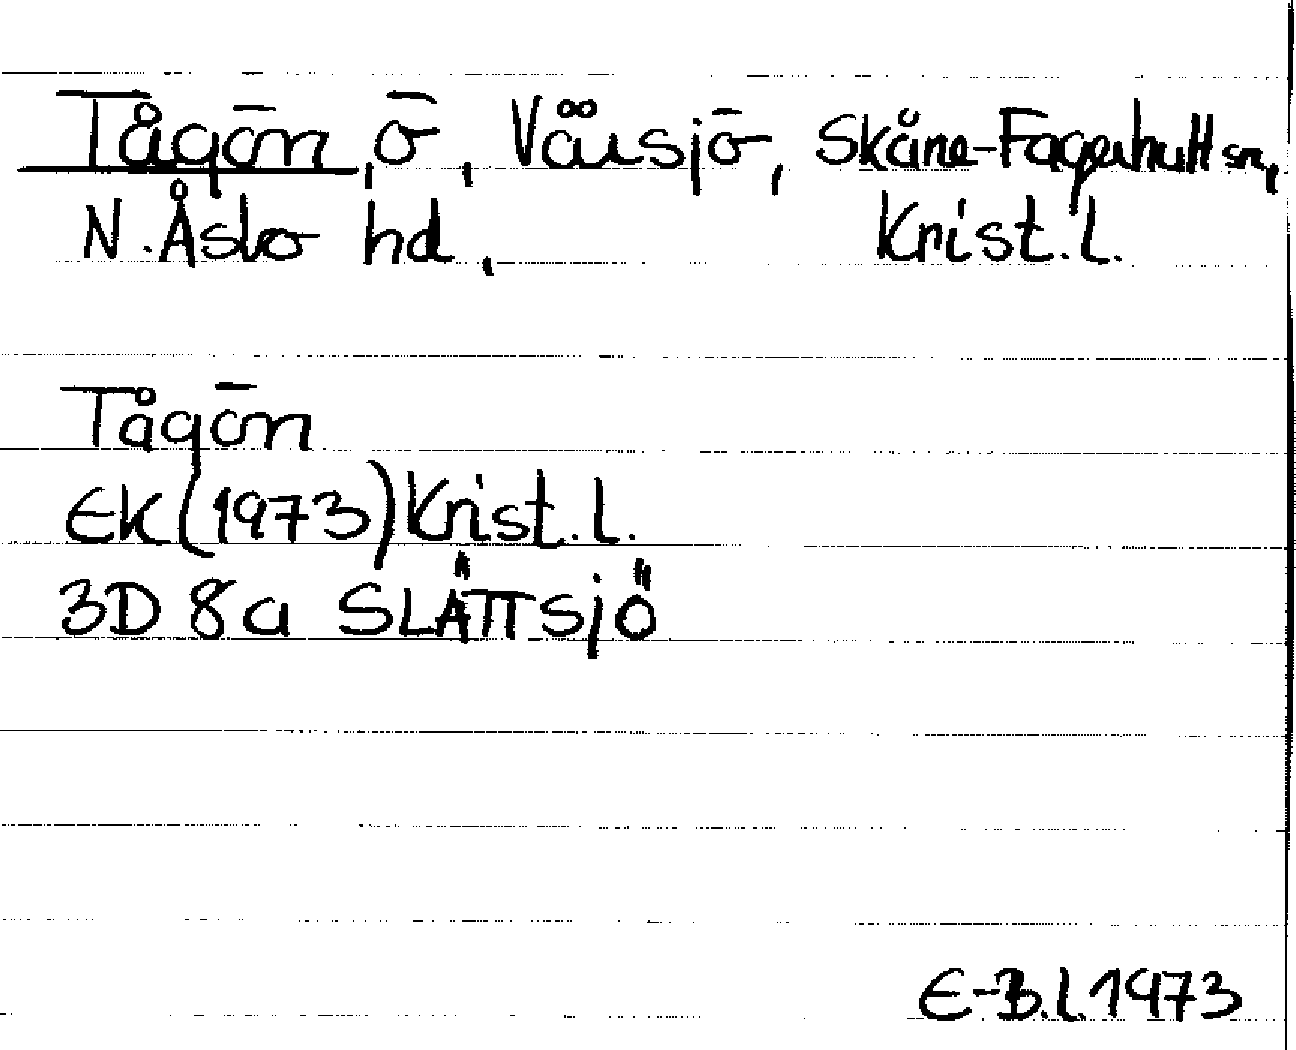 Tågön, ö, Värsjö, Skåne-Fagerhult sn,
N. Åsbo hd, Krist. l.
Tågön
EK (1973) Krist. l.
3D 8a SLÄTTSJÖ
E-B.L. 1973